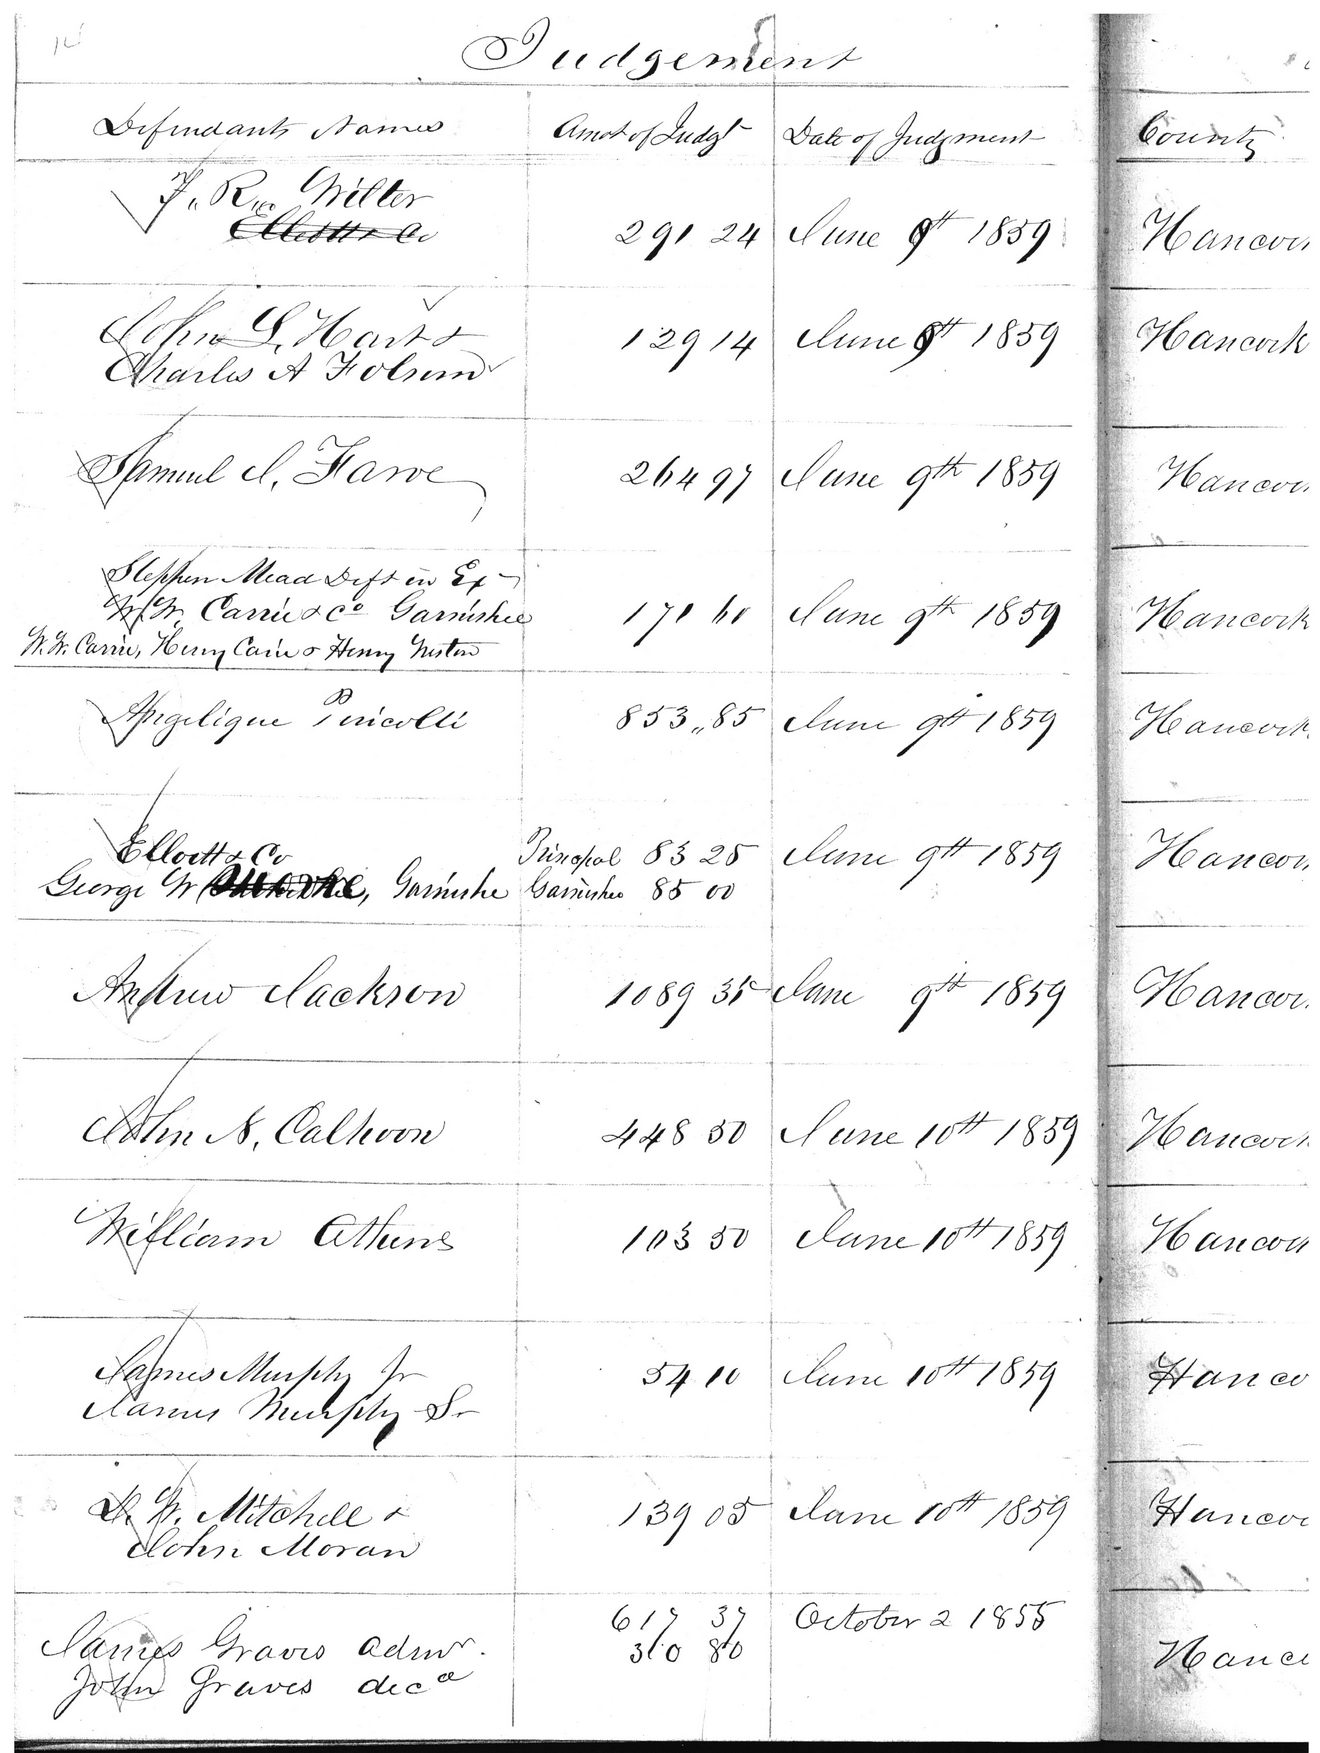 Judgement
Defendants Names Amot of Judgt Date of Judgment County
F. R. Wilter
Elliott & Co 291 24 June 9th 1859 Hancoc
John L. Hart & 129 14 June 9th 1859 Hancock
Charles A Folsom
Samuel J. Farve 264 97 June 9th 1859 Hancoc
Stephen Mead Deft in Ex
W. W. Carrie & Co Garnishee 171 60 June 9th 1859 Hancock
W. W. Carrie, Henry Carrie & Henry
Angelique 853 „ 85 June 9th 1859 Hancock
Elliott & Co Principal 83 25 June 9th 1859 Hancoc
George W Garnishe Garnishee 85 00
Andrew Jackson 1089 35 June 9th 1859 Hancoc
John N. Calhoon 448 50 June 10th 1859 Hancock
William Athens 103 50 June 10th 1859 Hancoc
James Murphy Jr 54 10 June 10th 1859 Hanco
James Murphy Sr
D. W. Mitchell & 139 05 June 10th 1859 Hancoc
John Moran
617 37 October 2 1855
James Graves admr. 310 80 Hanco
John Graves decd